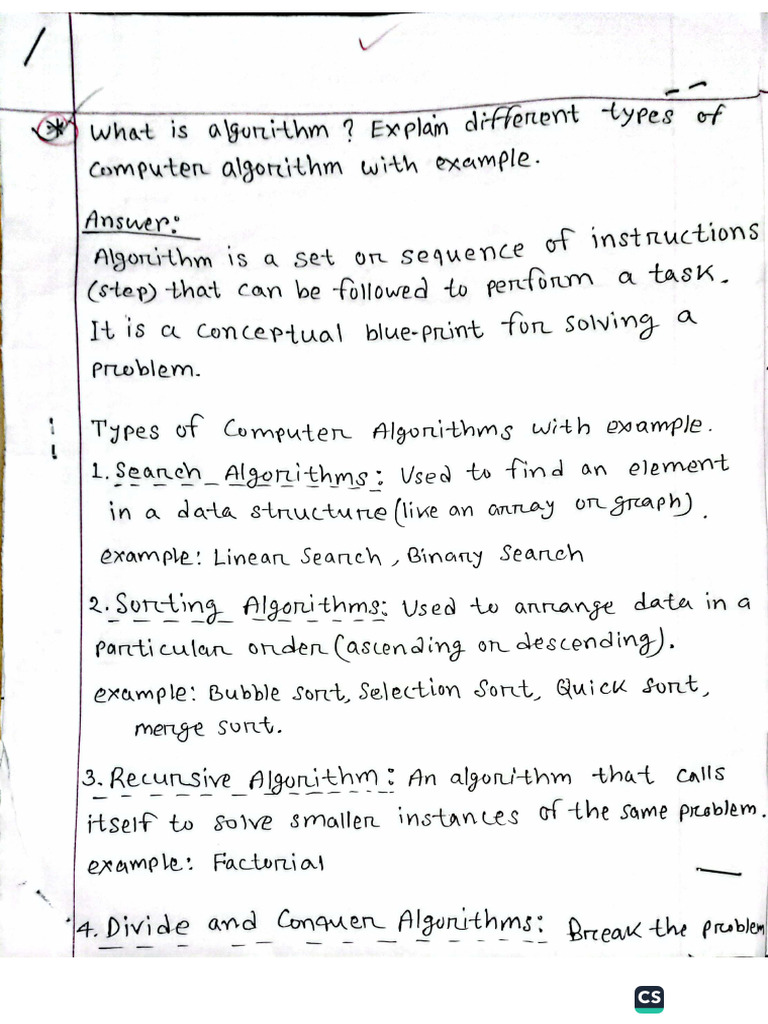 * What is algorithm? Explain different types of
computer algorithm with example.
Answer:
Algorithm is a set or sequence of instructions
(step) that can be followed to perform a task.
It is a conceptual blue-print for solving a
problem.
Types of Computer Algorithms with example.
1. Search Algorithms: Used to find an element
in a data structure (like an array or graph).
example: Linear Search, Binary Search
2. Sorting Algorithms: Used to arrange data in a
particular order (ascending or descending).
example: Bubble sort, Selection Sort, Quick sort,
merge sort.
3. Recursive Algorithm: An algorithm that calls
itself to solve smaller instances of the same problem.
example: Factorial
4. Divide and Conquer Algorithms: Break the problem
CS